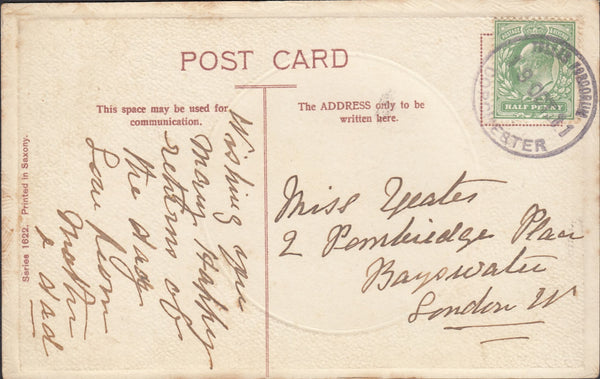 POST CARD
This space may be used for
communication.
The ADDRESS only to be
written here.
Wishing you
Many Happy
returns of
the day
Love from
Mother
& Dad
Miss Yeates
2 Pembridge Place
Bayswater
London W
Series 1622. Printed in Saxony.
POSTAGE REVENUE
HALF PENNY